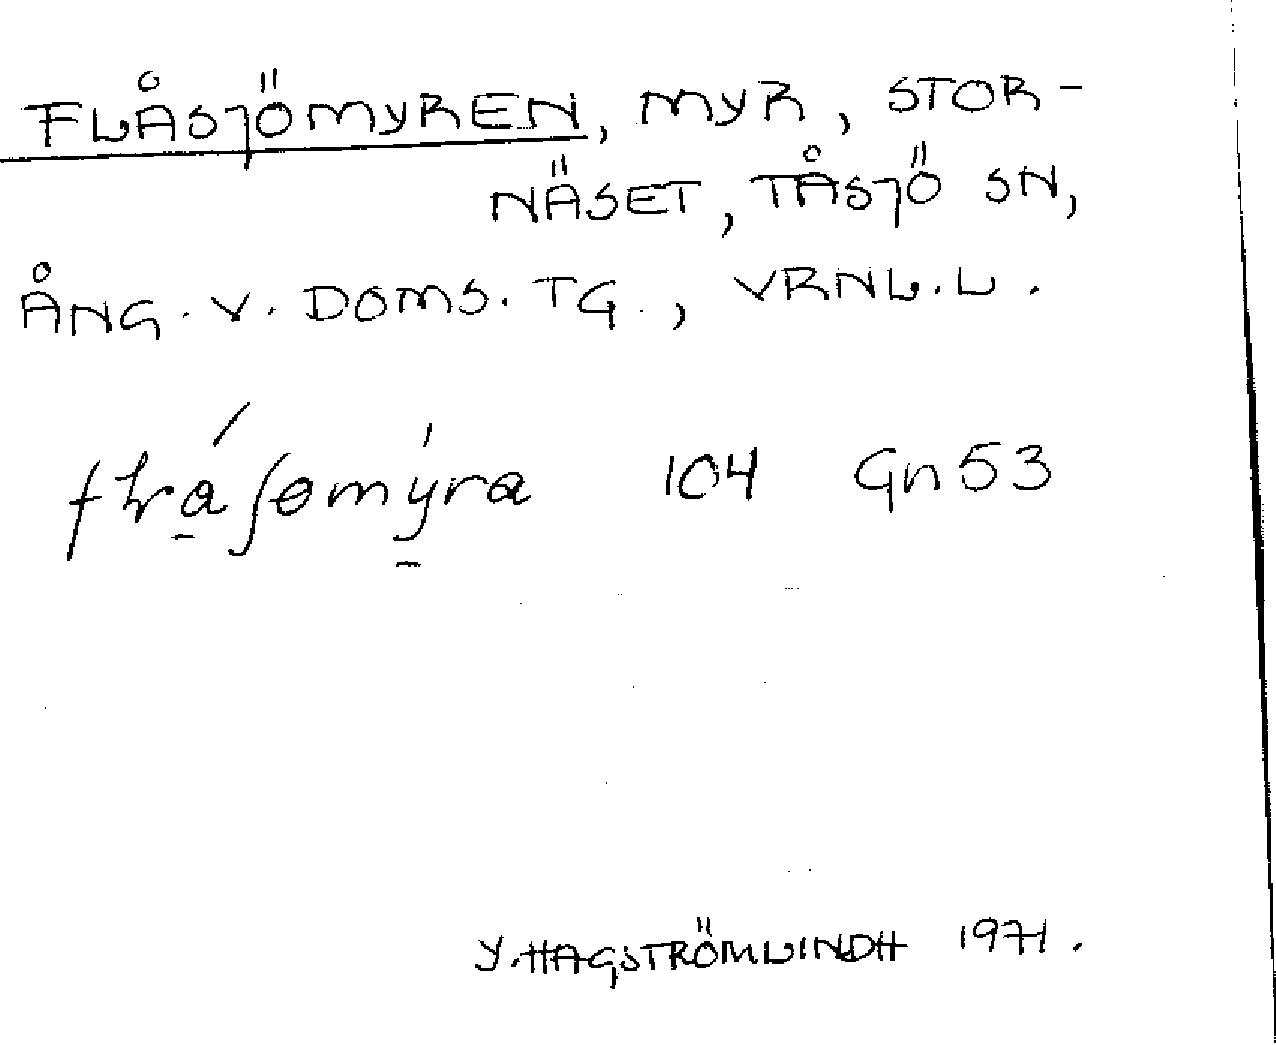 FLÅSJÖMYREN, MYR, STOR-
NÄSET, TÅSJÖ SN,
ÅNG. V. DOMS. TG., VRNL. L.
104 Gn 53
Y. HAGSTRÖM LINDH 1971.